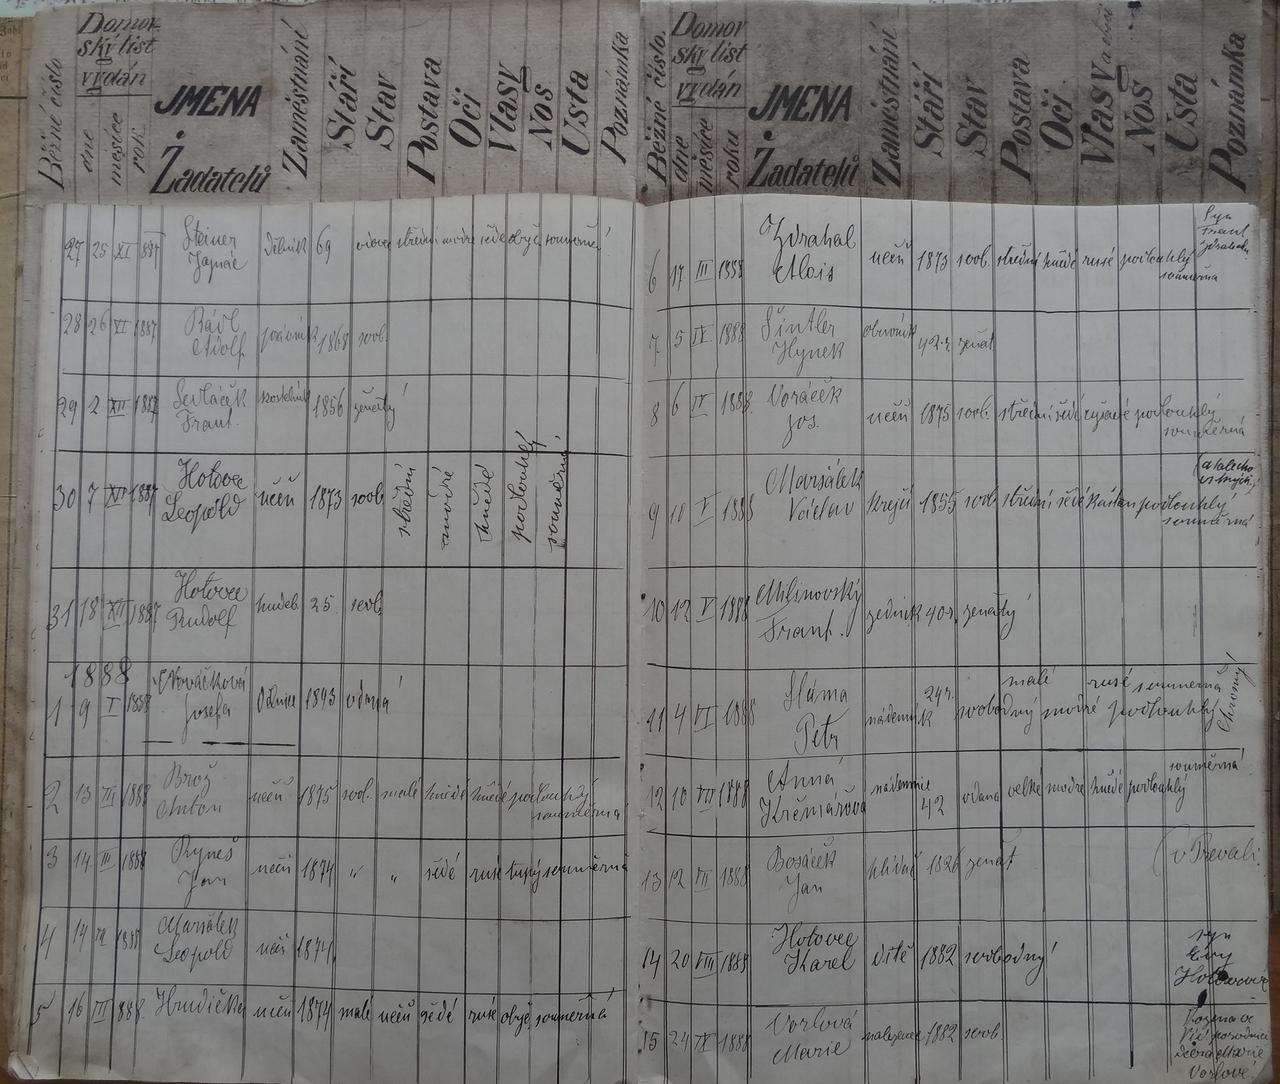 Běžné číslo
Domovský list
vydán
dne
měsíce
rok
JMENA
Žadatelů
Zaměstnání
Stáří
Stav
Postava
Oči
Vlasy
Nos
Ústa
Poznámka
27 25 XI 1887 Steiner Ignác dělník 69 střední modré šedé obyč. souměrní
28 26 XI 1887 Rádl Adolf 1868 svob.
29 2 XII 1887 Sedláček Frant. kostelník 1856 ženatý
30 7 XII 1887 Hotovec Leopold učeň 1873 svob. střední modré hnědé podlouhlý souměrná
31 18 XII 1887 Hotovec Rudolf hudeb. 25 svob.
1888
1 9 I 1888 Nováčková Josefa 1843 vdaná
2 13 III 1888 Brož Anton učeň 1875 svob. malé hnědé hnědé podlouhlý souměrná
3 14 III 1888 Ryneš Jan učeň 1874 " " šedé rusé tupý souměrná
4 14 III 1888 Maršálek Leopold učeň 1874
5 16 III 1888 Hrudička učeň 1874 malé šedé rusé obyč. souměrná
Běžné číslo.
Domovský list
vydán
dne
měsíce
roku
JMENA
Žadatelů
Zaměstnání
Stáří
Stav
Postava
Oči
Vlasy
Nos
Ústa
Poznámka
6 17 III 1888 Zdrahal Alois učeň 1873 svob. střední hnědé rusé podlouhlý souměrná syn Frant.
7 5 IV 1888 Šintler Hynek obuvník 42 r. ženat
8 6 IV 1888 Voráček Jos. učeň 1875 svob. střední šedé podlouhlý souměrná
9 10 V 1888 Maršálek Václav krejčí 1855 svob. střední šedé kaštan podlouhlý souměrná
10 12 V 1888 Milinovský Frant. zedník 40 r. ženatý
11 4 VI 1888 Sláma Petr nádenník 24 r. svobodný malé modré rusé podlouhlý souměrná Chromý!
12 10 VII 1888 Anna Krčmářová nádennice 42 vdaná velké modré hnědé podlouhlý souměrná
13 12 VII 1888 Bosáček Jan hlídač 1826 ženat (v Převali.
14 20 VIII 1888 Hotovec Karel dítě 1882 svobodný syn Evy Hotovcové
15 24 IX 1888 Vorlová Marie nalezenec 1882 svob. dcera Marie Vorlové